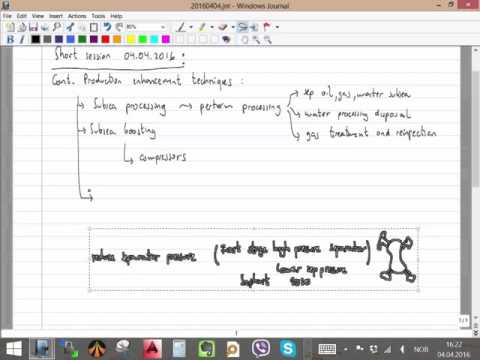 20160404.jnt - Windows Journal
File Edit View Insert Actions Tools Help
Short session 04.04.2016 :
Cont. Production enhancement techniques :
Subsea processing → perform processing → sep oil, gas, water subsea
→ water processing disposal
→ gas treatment and reinjection
Subsea boosting
compressors
reduce separator pressure (first stage high pressure separator)
Lower sep pressure
1/1
1
NOR
16:22
04.04.2016